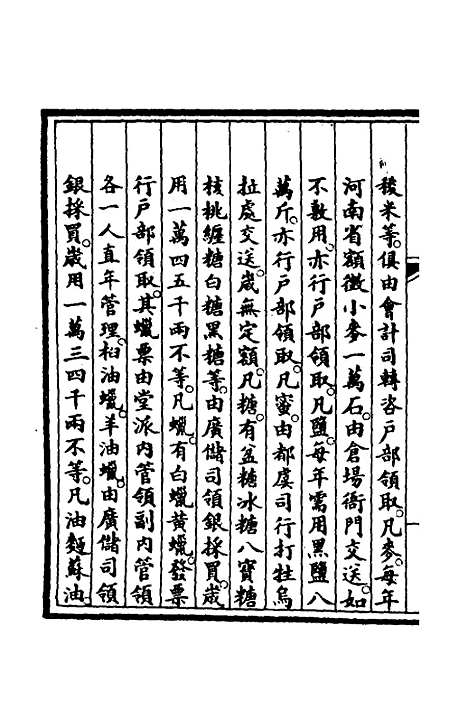 稜米等。俱由會計司轉咨戶部領取。凡麥。每年
河南省額徵小麥一萬石。由倉場衙門交送。如
不敷用。亦行戶部領取。凡鹽。每年需用黑鹽八
萬斤。亦行戶部領取。凡蜜。由都虞司行打牲烏
拉處交送。歲無定額。凡糖。有盆糖冰糖八寶糖
核桃纏糖白糖黑糖等。由廣儲司領銀採買。歲
用一萬四五千兩不等。凡蠟。有白蠟黃蠟。發票
行戶部領取。其蠟票由堂派內管領副內管領
各一人直年管理。桕油蠟。羊油蠟。由廣儲司領
銀採買。歲用一萬三四千兩不等。凡油麵蘇油。